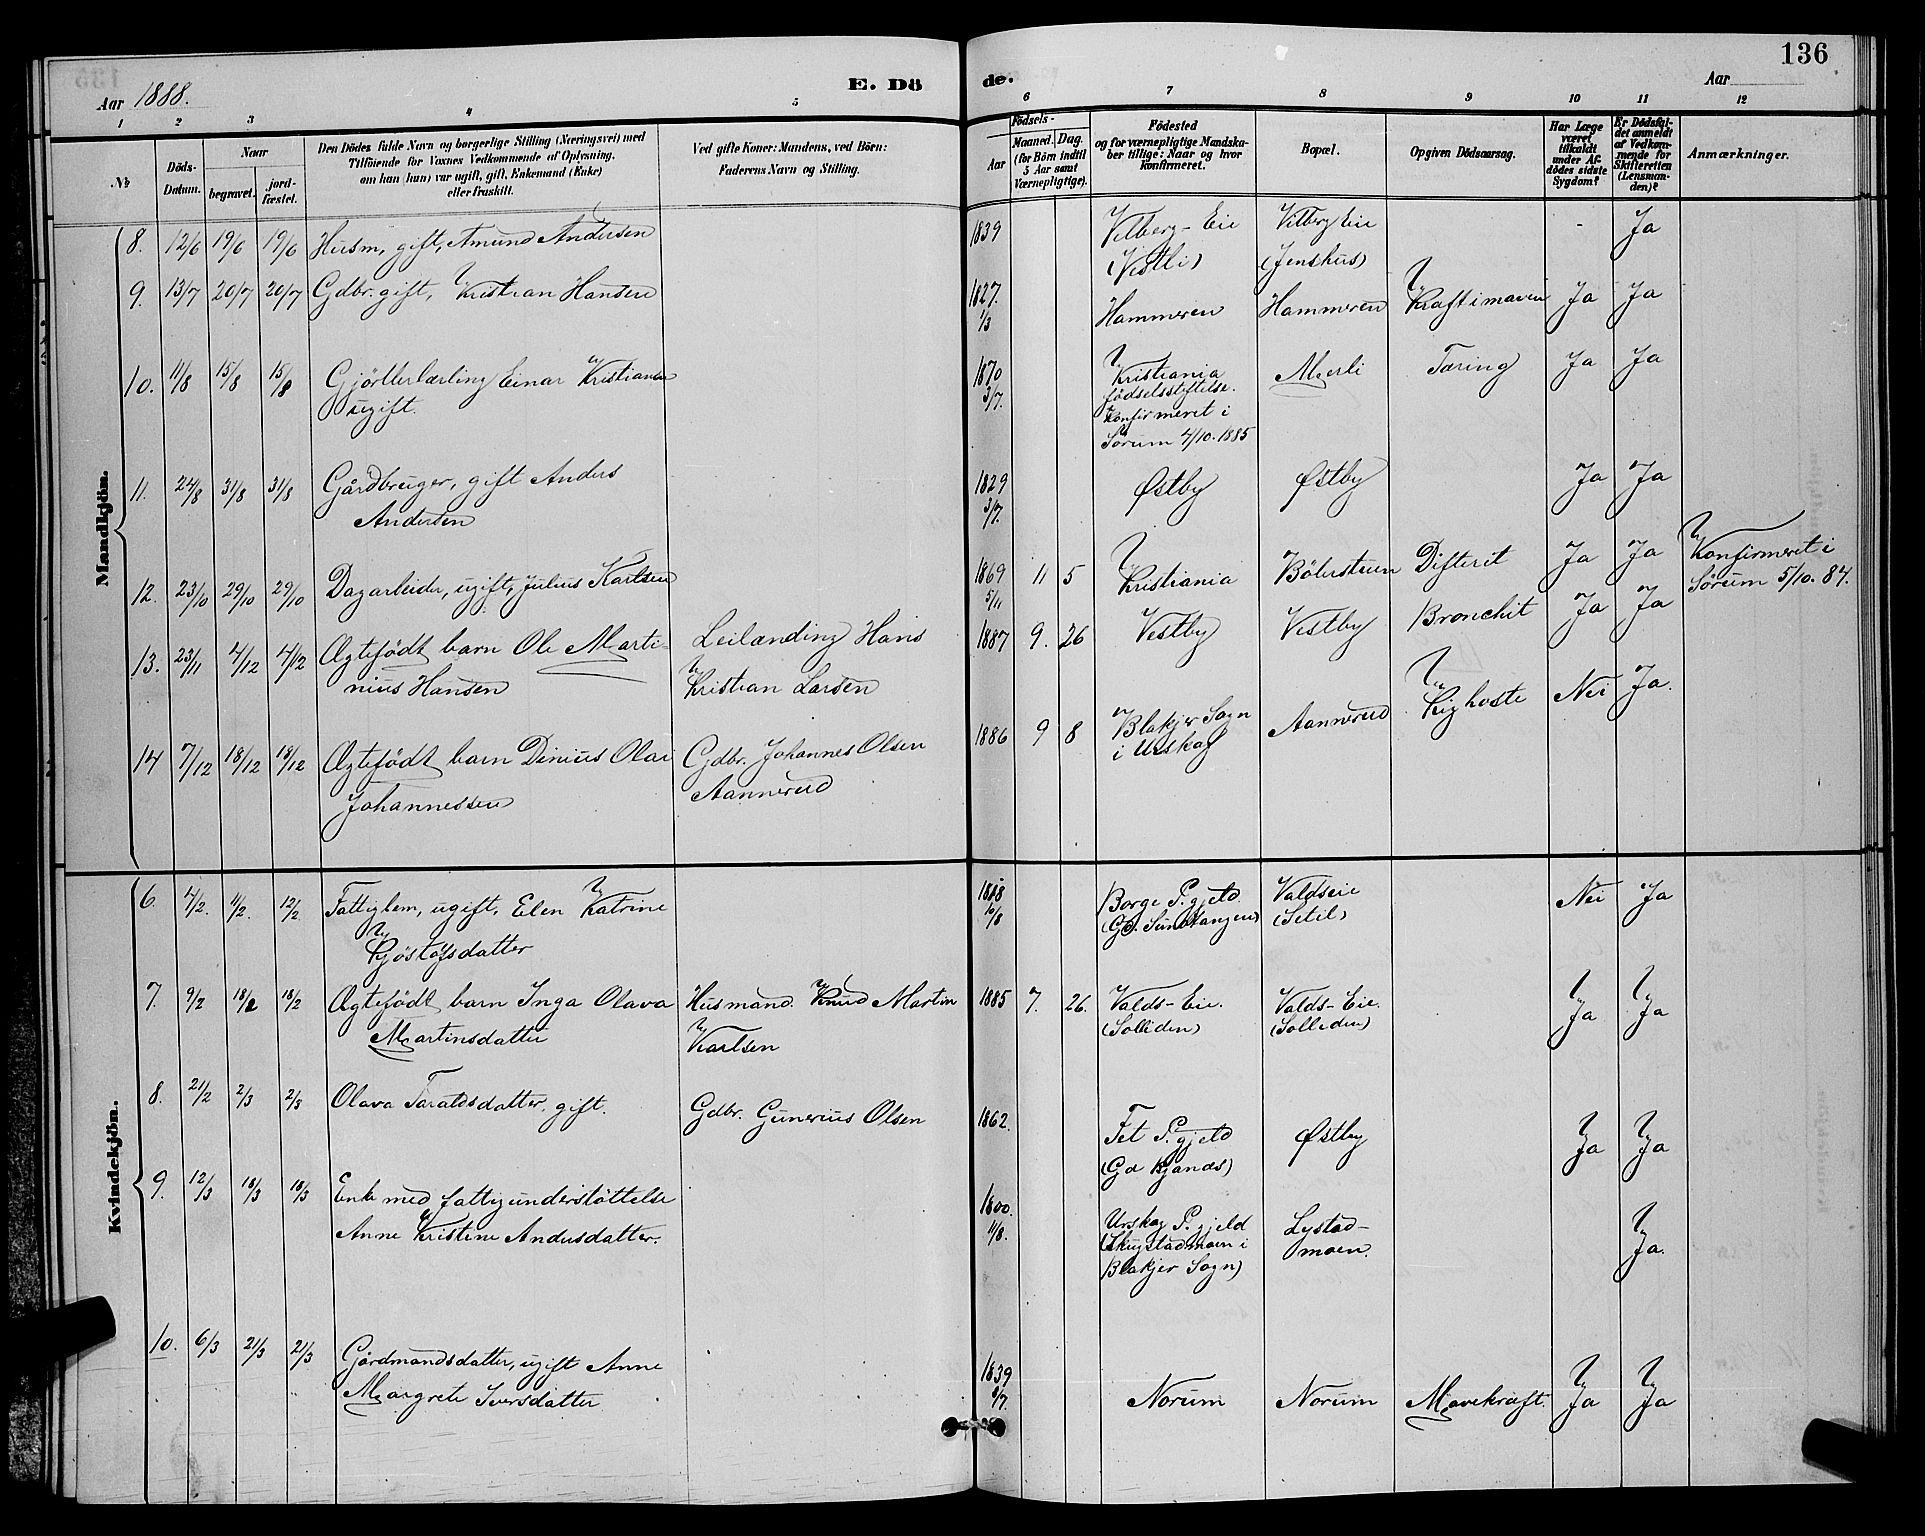 136
Aar 1888.
E. Dö
de.
Aar
1 2 3 4 5 6 7 8 9 10 11 12
№
Döds-Datum.
Naar
begravet.
jord-fæstet.
Den Dödes fulde Navn og borgerlige Stilling (Næringsvei) med
Tilföiende for Voxnes Vedkommende af Oplysning,
om han (hun) var ugift, gift, Enkemand (Enke)
eller fraskilt.
Ved gifte Koner: Mandens, ved Börn:
Faderens Navn og Stilling.
Födsels-
Aar
Maaned.
Dag.
(for Börn indtil
5 Aar samt
Værnepligtige).
Födested
og for værnepligtige Mandska-
ber tillige: Naar og hvor
konfirmeret.
Bopæl.
Opgiven Dödsaarsag.
Har Læge
været
tilkaldt
under Af-
dödes sidste
Sygdom?
Er Dödsfal-
det anmeldt
af Vedkom-
mende for
Skifteretten
(Lensman-
den)?
Anmærkninger.
Mandkjön.
8. 12/6 19/6 19/6 Husm, gift, Amund Andersen 1839 Vilberg-Eie Vilberg Eie - Ja
(Vestli) (Jenshus)
9. 13/7 20/7 20/7 Gdbr. gift, Kristian Hansen 1827. 1/3 Hammeren Hammeren Kræft i maven Ja Ja
10. 11/8 15/8 15/8 Gjörtlerlærling Einar Kristiansen 1870 3/7. Kristiania Merli Tæring Ja Ja
ugift. födselsstiftelse.
Konfirmeret i
Sørum 4/10. 1885
11. 24/8 31/8 31/8 Gårdbruger, gift Anders 1829 3/7. Østby Østby Ja Ja
Andersen
12. 23/10 29/10 29/10 Dagarbeider, ugift, Julius Karlsen 1869 5/11 11 5 Kristiania Bölerstuen Difterit Ja Ja Konfirmeret i
Sørum 5/10. 84.
13. 23/11 4/12 4/12 Ægtefödt barn Ole Marti- Leilænding Hans 1887 9. 26 Vestby Vestby Bronchit Ja Ja
nius Hansen Kristian Larsen
14 7/12 18/12 18/12 Ægtefödt barn Dinius Olai Gdbr. Johannes Olsen 1886 9 8 Blakjer Sogn Aannerud Kighoste Nei Ja.
Johannessen Aannerud i Urskog
Kvindekjön.
6 4/2. 11/2. 12/2 Fattiglem, ugift, Elen Katrine 1818 10/8 Borge P.gjeld Valdseie Nei Ja
Kjöstøfsdatter (Gd. Sundhaugen) (Setil)
7. 9/2 18/2 18/2 Ægtefödt barn Inga Olava Husmand. Knud Martin 1885 7. 26. Valds-Eie. Valds-Eie. Ja Ja
Martinsdatter Karlsen (Solliden) (Solliden)
8. 21/2 2/3 2/3 Olava Taraldsdatter, gift. Gdbr. Gunerius Olsen 1862. Fet P.gjeld Østby Ja Ja
(Gd Kjands)
9. 12/3 18/3 18/3 Enke med fattigunderstöttelse 1800. 11/8. Urskog P. gjeld Lystad- Ja.
Anne Kristine Andersdatter. (Skugstadmoen i moen.
Blakjer Sogn)
10. 6/3 21/3 21/3 Gårdmandsdatter, ugift Anne 1839 8/7. Norum Norum Mavekræft. Ja Ja
Margrete Iversdatter